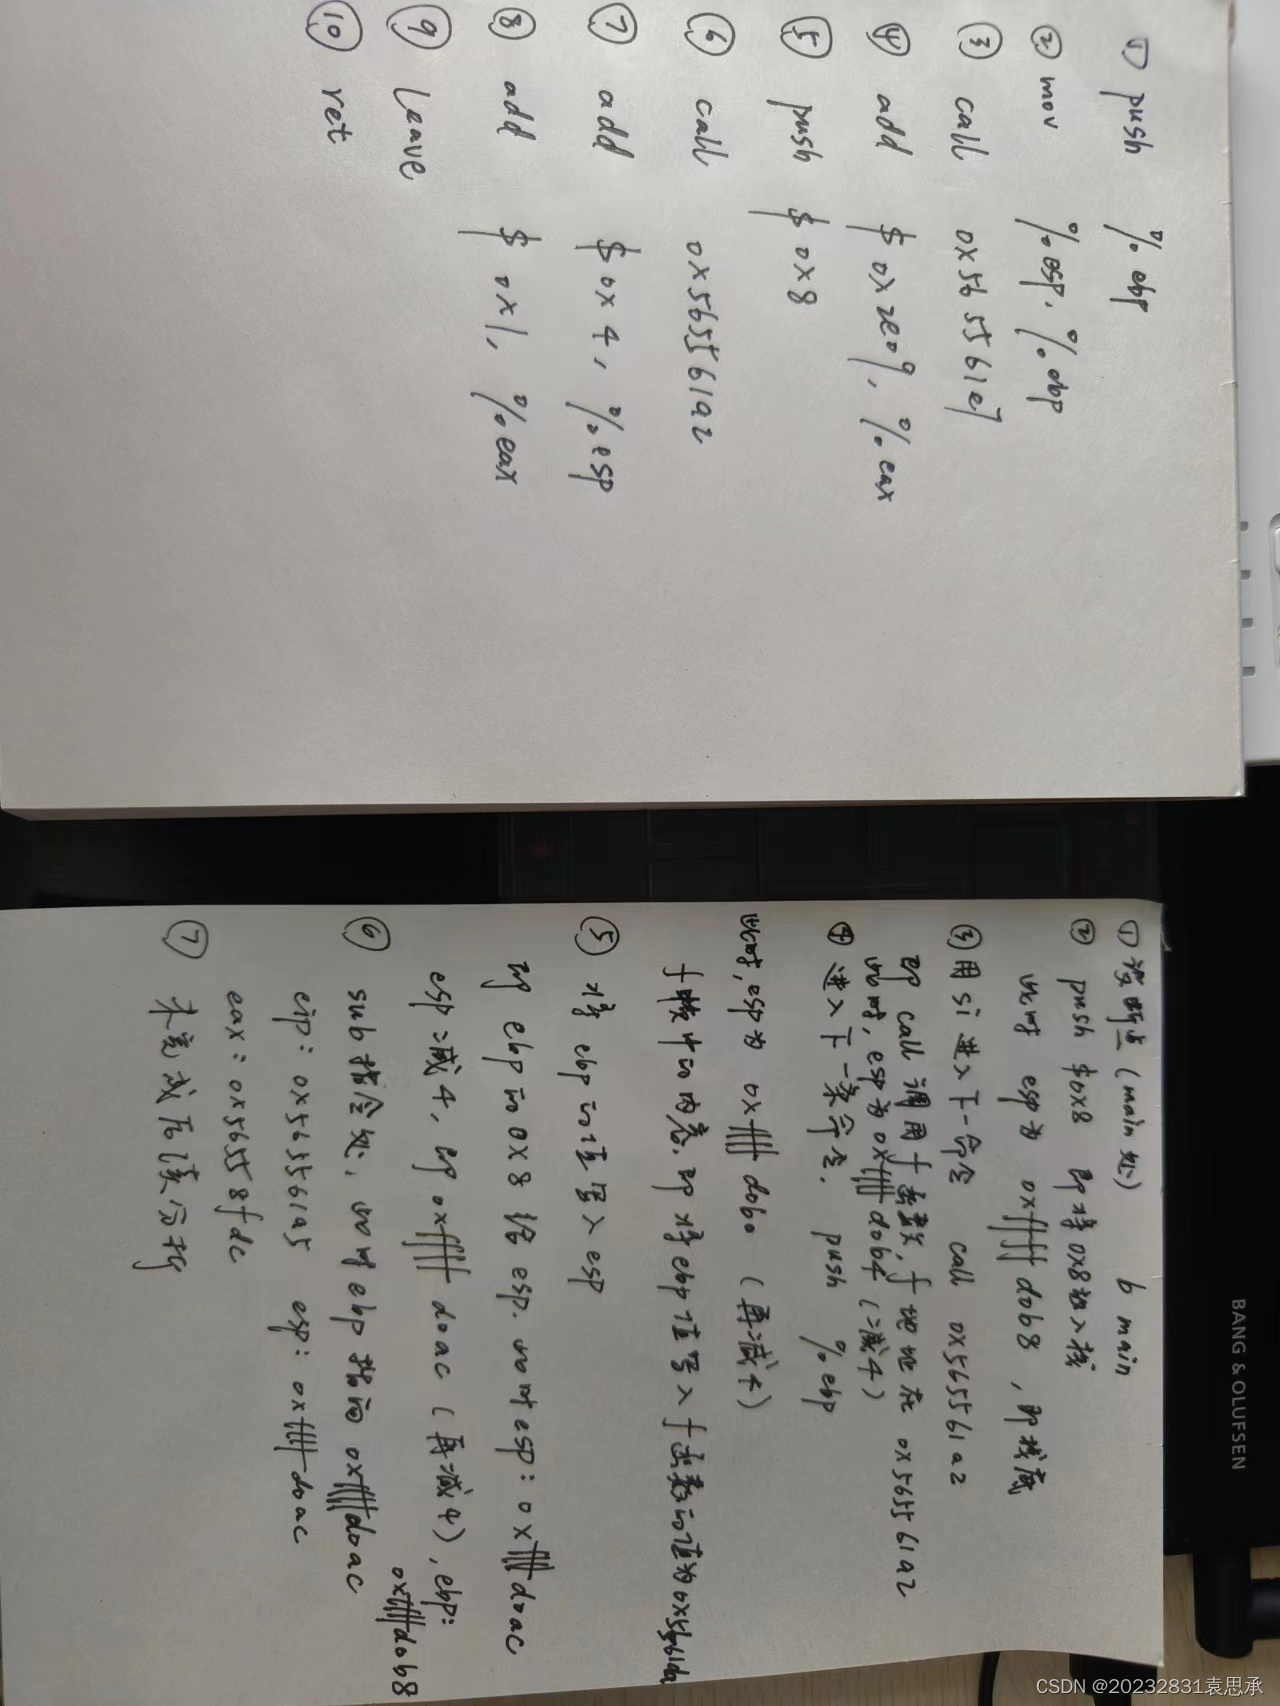 ① push %ebp
② mov %esp, %ebp
③ call 0x565561e7
④ add $0x2e09, %eax
⑤ push $0x8
⑥ call 0x565561a2
⑦ add $0x4, %esp
⑧ add $0x1, %eax
⑨ leave
⑩ ret
① 设断点 (main处) b main
② push $0x8 即将0x8执入栈
此时 esp为 0xffffd0b8, 即栈底
③ 用 si 进入下一命令 call 0x565561a2
即 call 调用 f 函数, f 地址在 0x565561a2
此时, esp为 0xffffd0b4 (减4)
④ 进入下一条命令. push %ebp
此时, esp为 0xffffd0b0 (再减4)
f 中的内容. 即将ebp值写入 f 函数
⑤ 将 ebp的值写入 esp
即 ebp的0x8 给 esp. 此时esp: 0xffffd0ac
esp 减4, 即 0xffffd0ac (再减4), ebp:
0xffffd0b8
⑥ sub 指令处, 此时ebp指向 0xffffd0ac
eip: 0x565561a5 esp: 0xffffd0ac
eax: 0x56558fdc
⑦ 未完成反汇分析
BANG & OLUFSEN
CSDN @20232831袁思承